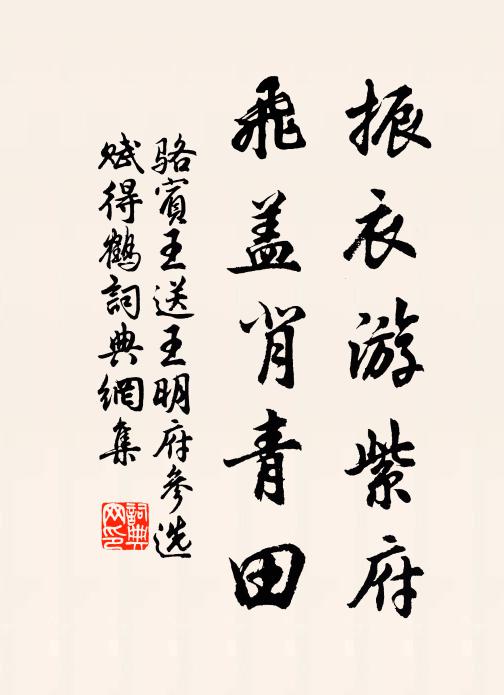 振衣游紫府
飛盖背青田
駱賓王送王明府參选
赋得鶴詞典網集
詞典网印